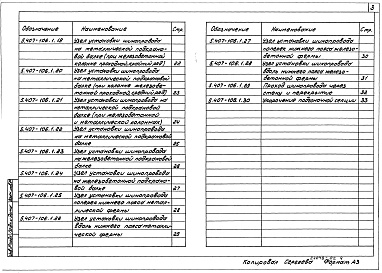 3
Обозначение Наименование Стр.
5.407-106.1.19 Узел установки шинопровода
на металлической подкрано-
вой балке (при железобетонной
22
5.407-106.1.20 Узел установки шинопровода
на металлической подкрановой
балке (при колонне железобе-
23
5.407-106.1.21 Узел установки шинопровода на
металлической подкрановой
балке (при железобетонной
и металлической колоннах) 24
5.407-106.1.22 Узел установки шинопровода
на металлической подкрановой
балке 25
5.407-106.1.23 Узел установки шинопровода
на железобетонной подкрановой
балке 26
5.407-106.1.24 Узел установки шинопровода
на железобетонной подкрано-
вой балке 27
5.407-106.1.25 Узел установки шинопровода
поперек нижнего пояса метал-
лической фермы 28
5.407-106.1.26 Узел установки шинопровода
вдоль нижнего пояса металли-
ческой фермы 29
Обозначение Наименование Стр.
5.407-106.1.27 Узел установки шинопровода
поперек нижнего пояса железо-
бетонной фермы 30
5.407-106.1.28 Узел установки шинопровода
вдоль нижнего пояса железо-
бетонной фермы 31
Проход шинопровода через
стену и перекрытие 32
5.407-106.1.30 33
Копировал Сергеева Формат А3